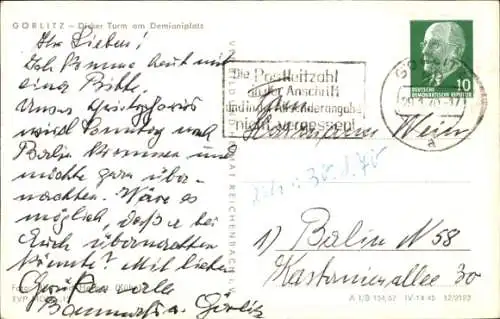 GÖRLITZ – Dicker Turm am Demianiplatz
Ihr Lieben!
Ich komme heut mit
einer Bitte.
Unser
wird Sonntag nach
Berlin kommen und
möchte gern über-
nachten. Wäre es
möglich, daß er bei
Euch übernachten
könnte? Mit lieben
Grüßen alle
a. Görlitz
REICHENBACH
Die Postleitzahl
in der Anschrift
und in der Absenderangabe
nicht vergessen!
GÖRLITZ
a
10
DEUTSCHE
DEMOKRATISCHE REPUBLIK
30.1.70
1) Berlin N 58
Kastanienallee 30
A 1/B 154/67 IV-14-45 12/2193